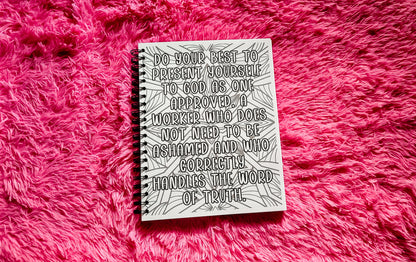 DO YOUR BEST TO
PRESENT YOURSELF
TO GOD AS ONE
APPROVED, A
WORKER WHO DOES
NOT NEED TO BE
ASHAMED AND WHO
CORRECTLY
HANDLES THE WORD
OF TRUTH.